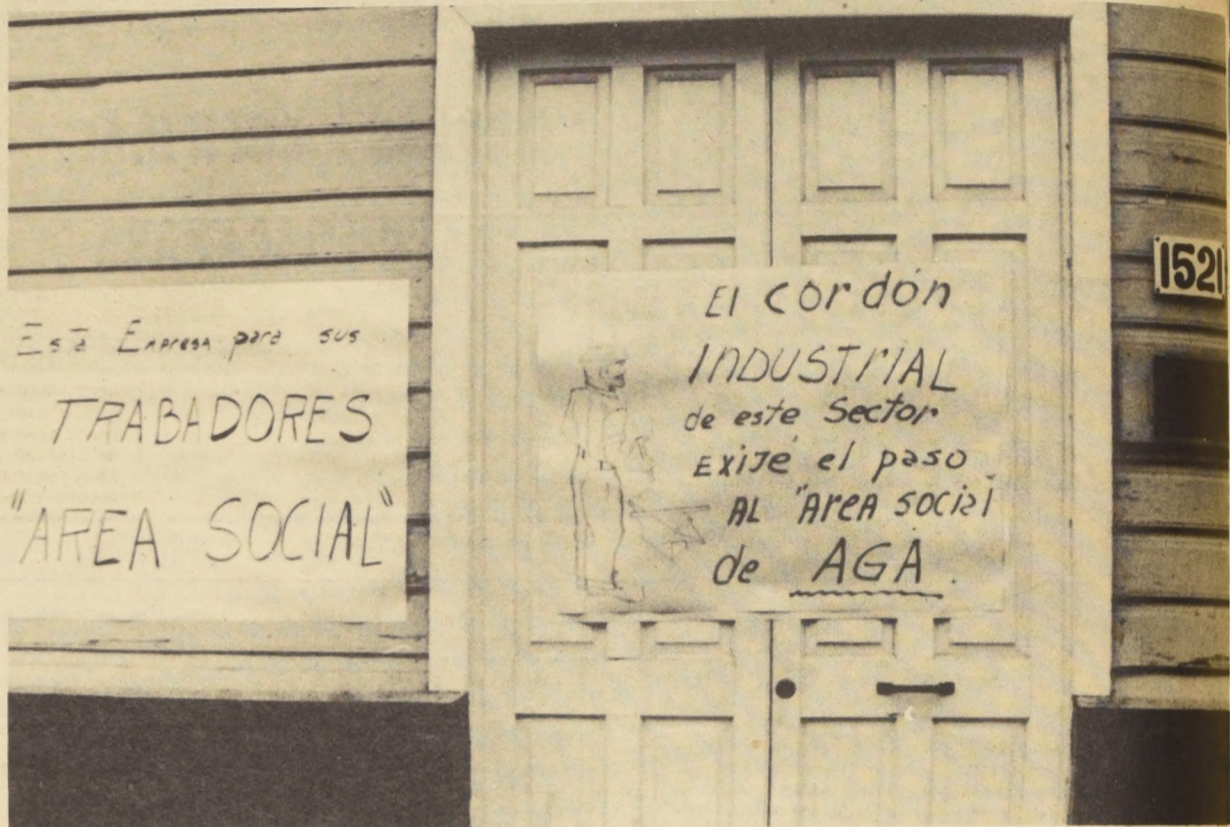 Esta Empresa para sus
TRABADORES
"AREA SOCIAL"
El cordón
INDUSTRIAL
de este Sector
EXIJE el paso
AL "Area social
de AGA.
1521